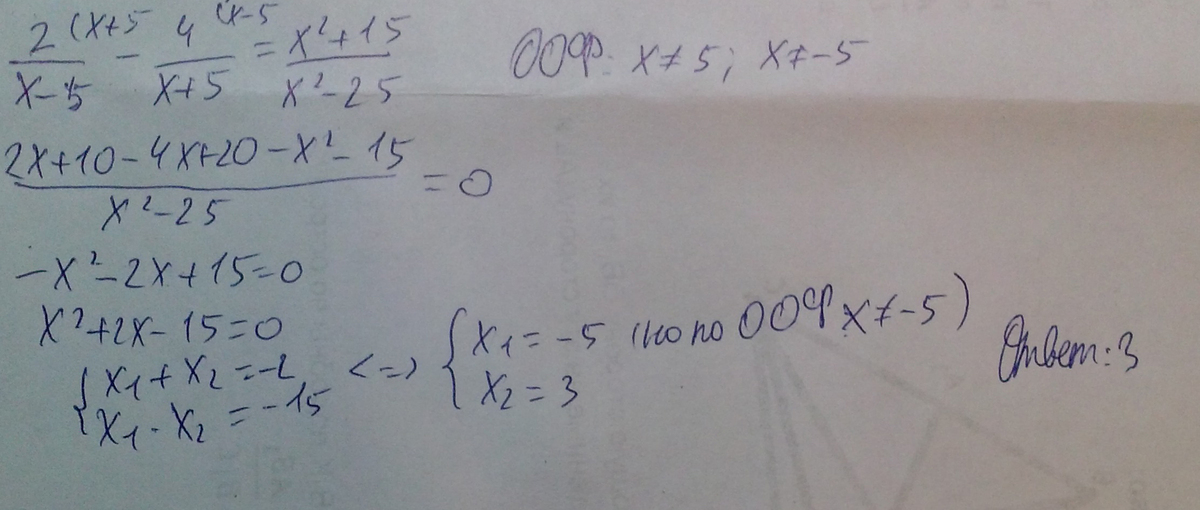 2 (x+5 / x-5 - 4 (x-5 / x+5 = x²+15 / x²-25 ООФ: x≠5; x≠-5
2x+10-4x+20-x²-15 / x²-25 = 0
-x²-2x+15=0
x²+2x-15=0
{ x₁+x₂=-2 <=> { x₁=-5 (но по ООФ x≠-5)
x₁·x₂=-15 x₂=3
Ответ: 3